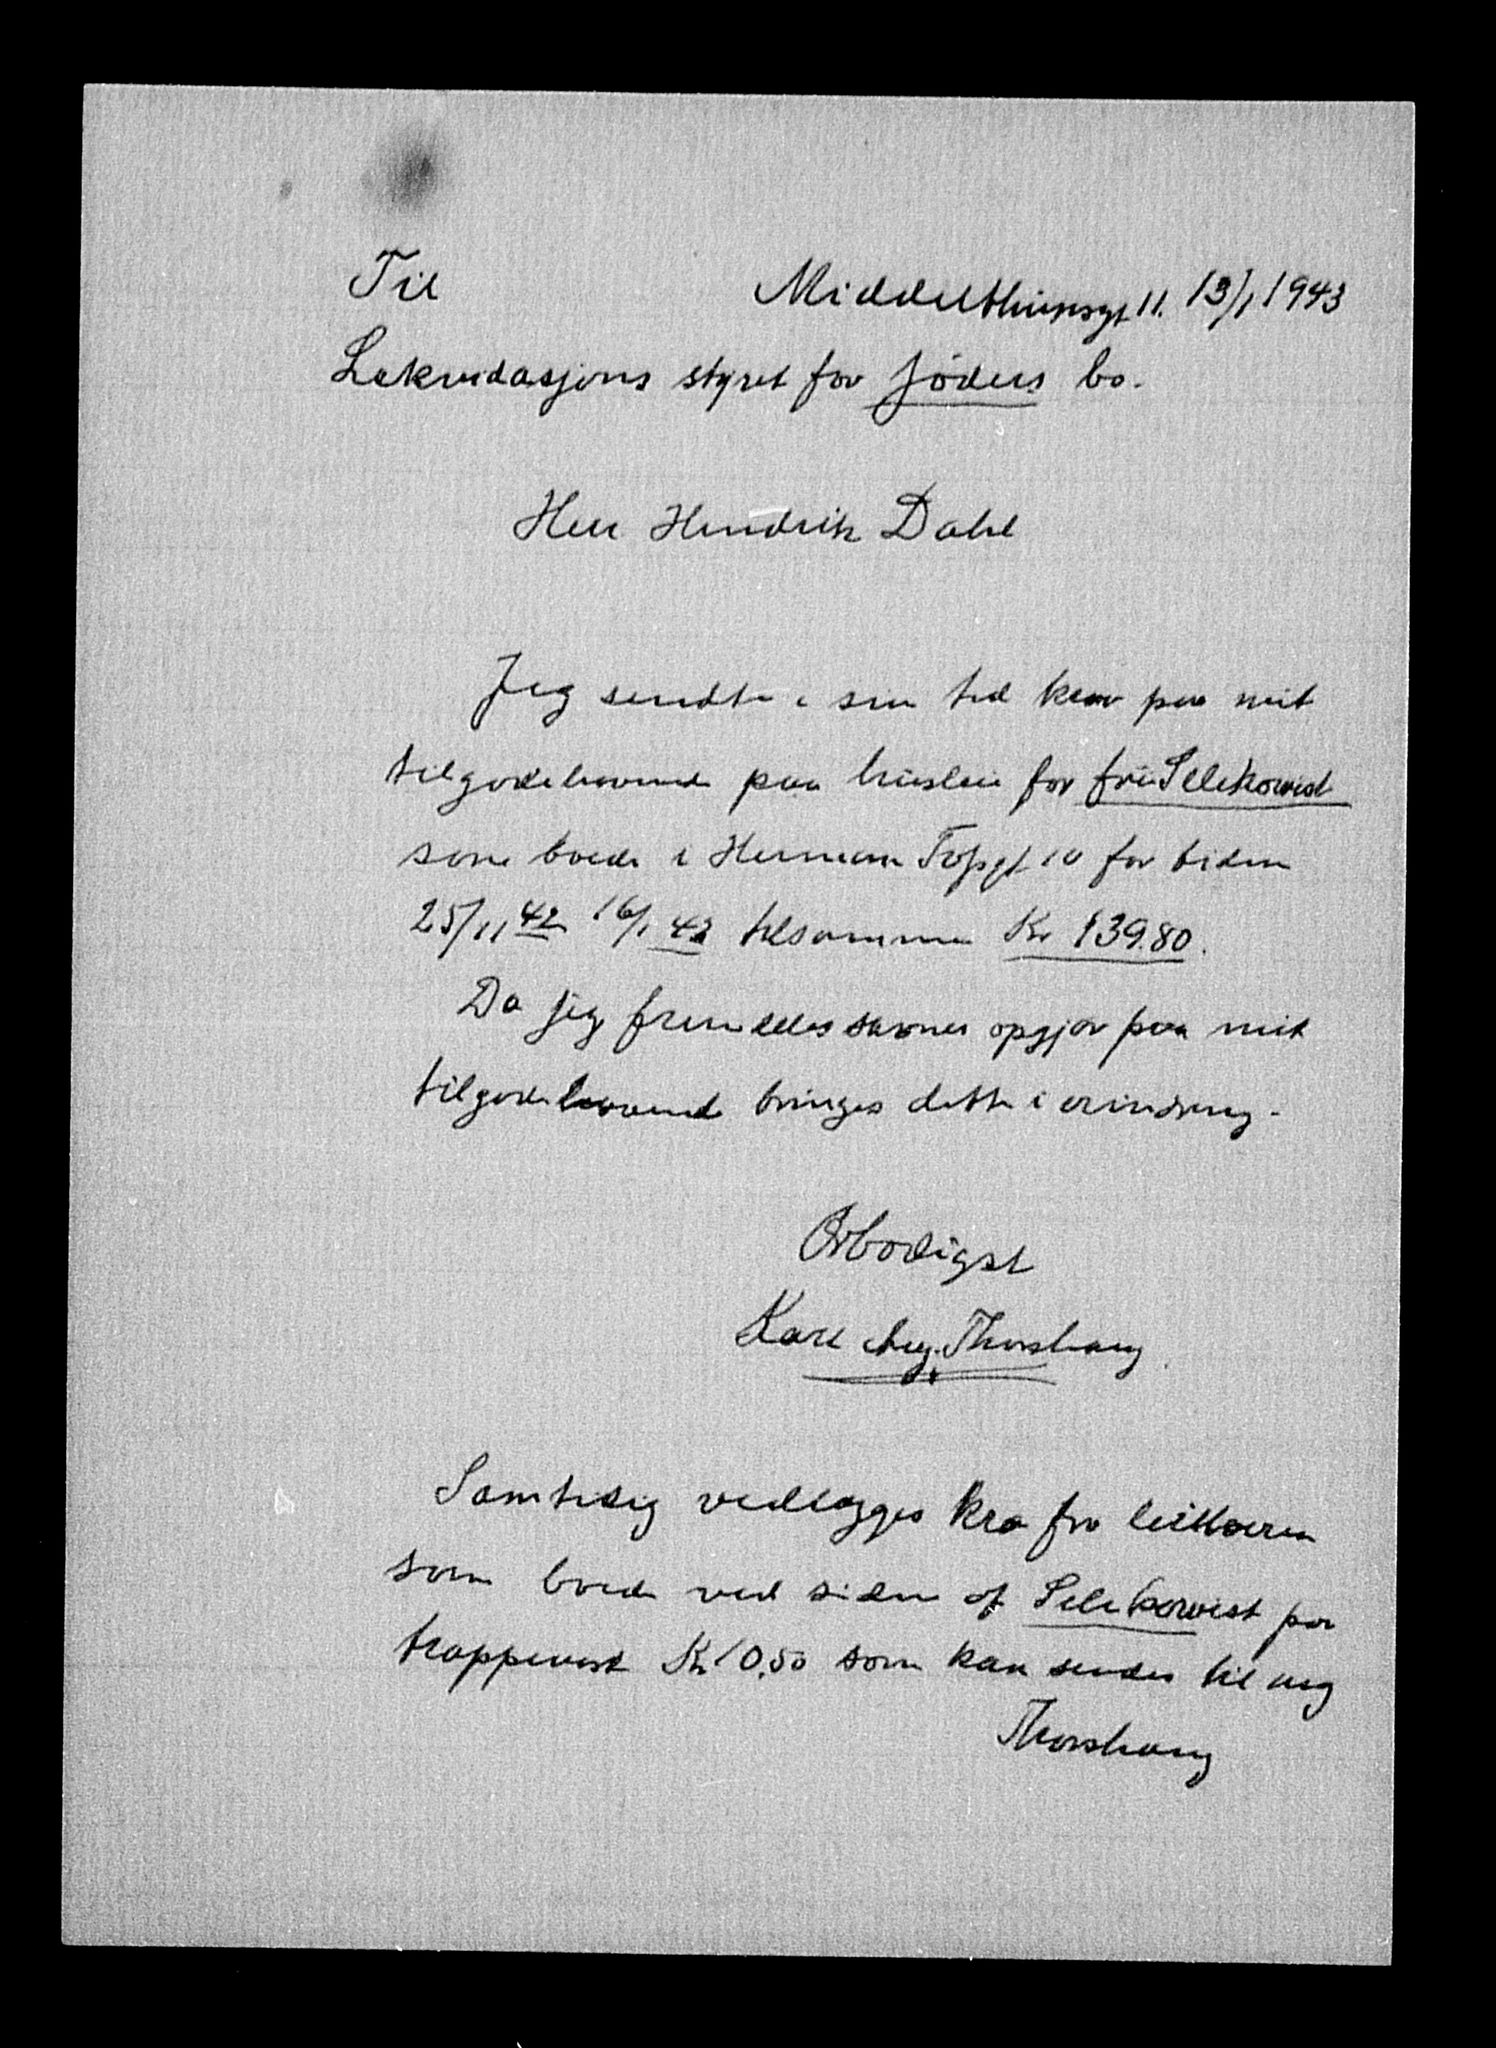 Til Middelthunsgt 11. 13/1 1943
Lekvidasjons styret for jøders bo.
Herr Hendrik Dahl
Jeg sendte i sin tid krav paa mit
tilgodehavende paa husleie for frü Selikowist
som boede i Herman Fossgt 10 for tiden
25/11 42 16/1 43 tilsammen Kr 139.80.
Da jeg fremdeles savner opgjør paa mit
tilgodehavende bringes dette i erindring.
Ørbødigst
Karl Aug. Thorshaug
Samtidig vedlægges kra fra leieboeren
som boede ved siden af Selikowist for
trappevask Kr 10.50 som kan sendes til meg
Thorshaug